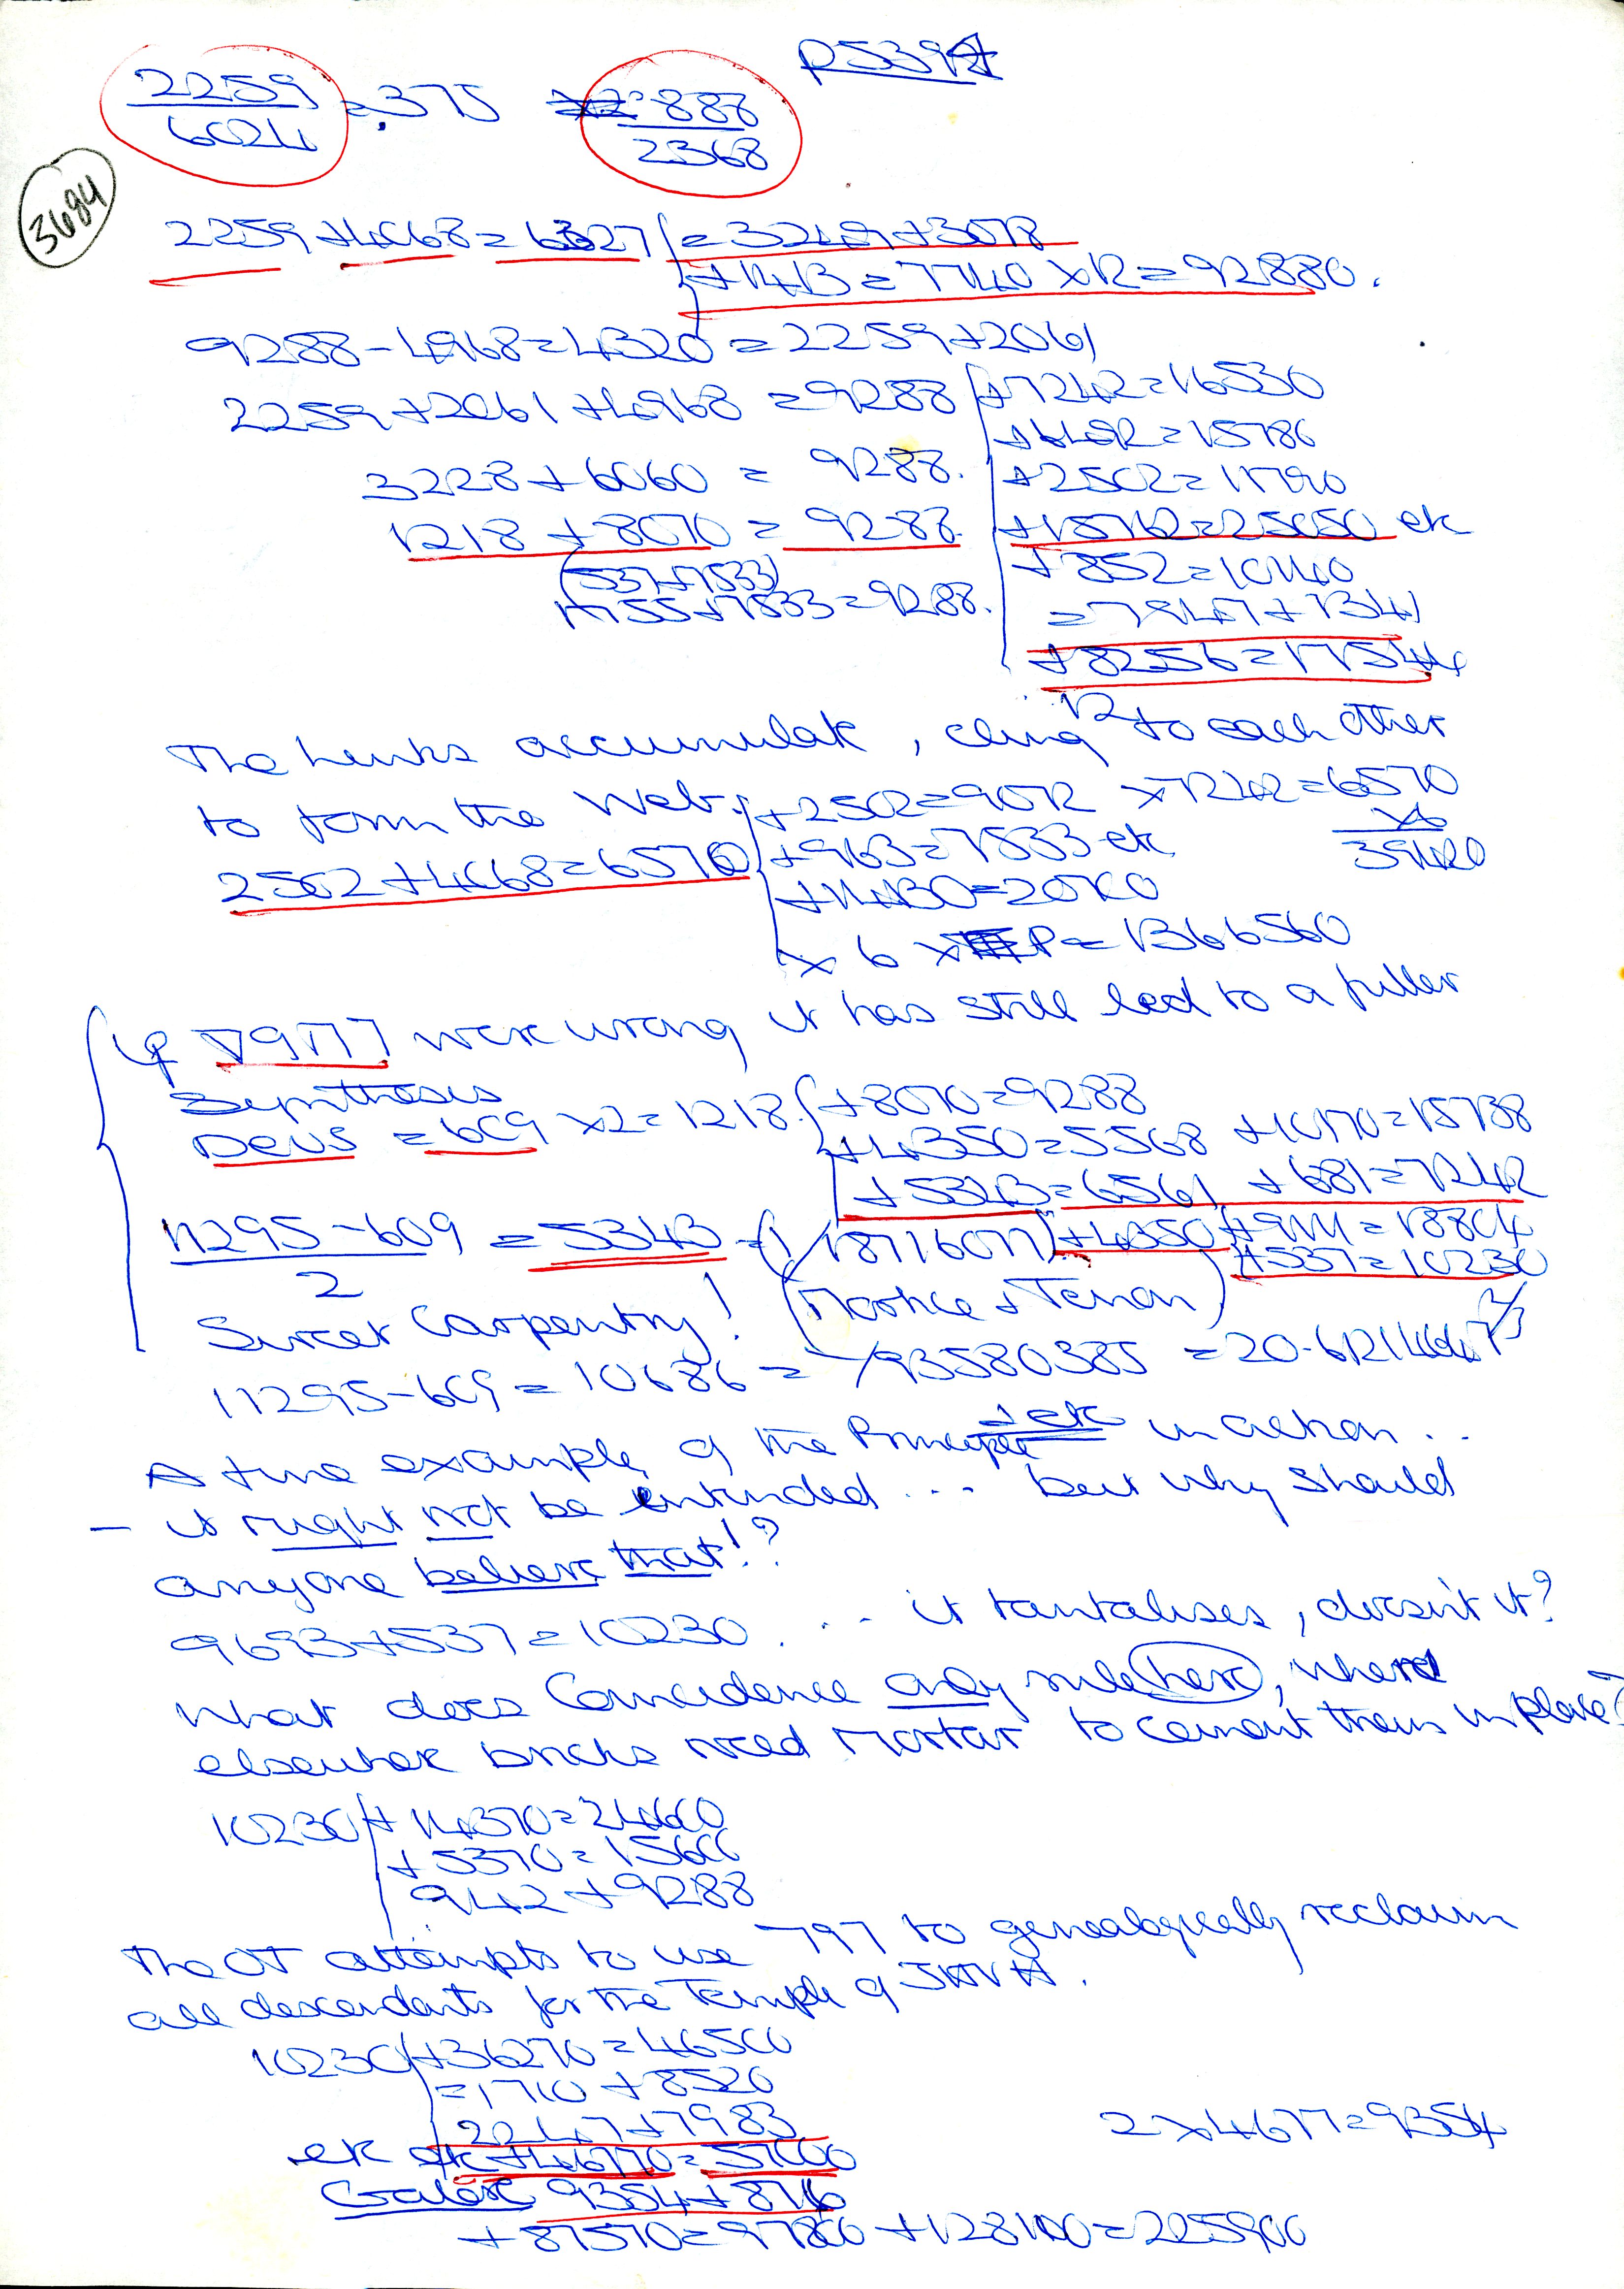 P5394
2259/6024 = .375 888/2368
3684
2259 + 4068 = 6327 = 3249 + 3078
+ 1413 = 7740 x 12 = 92880.
9288 - 4968 = 4320 = 2259 + 2061
2259 + 2061 + 4968 = 9288 + 7242 = 16530
+ 6492 = 15780
3228 + 6060 = 9288. + 2502 = 11790
1218 + 8070 = 9288 + 15762 = 25050 etc
(537 + 7533) + 852 = 10140
1755 + 7533 = 9288. = 7947 + 1341
+ 8256 = 17544
The links accumulate, cling to each other
12
to form the Web. + 2502 = 9072 x 7242 = 6570
2502 + 4068 = 6570 + 963 = 7533 etc x6
39420
+ 14130 = 20700
x 6 x P = 1366560
If were wrong it has still led to a fuller
Synthesis
Deus = 609 x 2 = 1218. + 8070 = 9288
+ 4350 = 5568 + 10170 = 15738
+ 5343 = 6561 + 681 = 7242
11295 - 609 = 5343 = (1/1871607) + 4350 + 9111 = 18804
2
+ 537 = 10230
Sweet Carpentry! (Mortice + Tenon)
11295 - 609 = 10686 = 1/93580385 =
A fine example of the Principle etc in action ..
- it might not be intended ... but why should
anyone believe that!?
9693 + 537 = 10230 ... it tantalises, doesn't it?
What does Coincidence only rule here, where
elsewhere bricks need Mortar to cement them in place?
10230 + 14370 = 24600
+ 5370 = 15600
942 + 9288
The OT attempts to use 797 to genealogically reclaim
all descendants for the Temple of JHVH.
10230 + 36270 = 46500
= 1710 + 8520
2247 + 7983
2 x 4677 = 9354
etc + 46770 = 57000
9354 + 876
+ 87570 = 97800 + 128100 = 225900